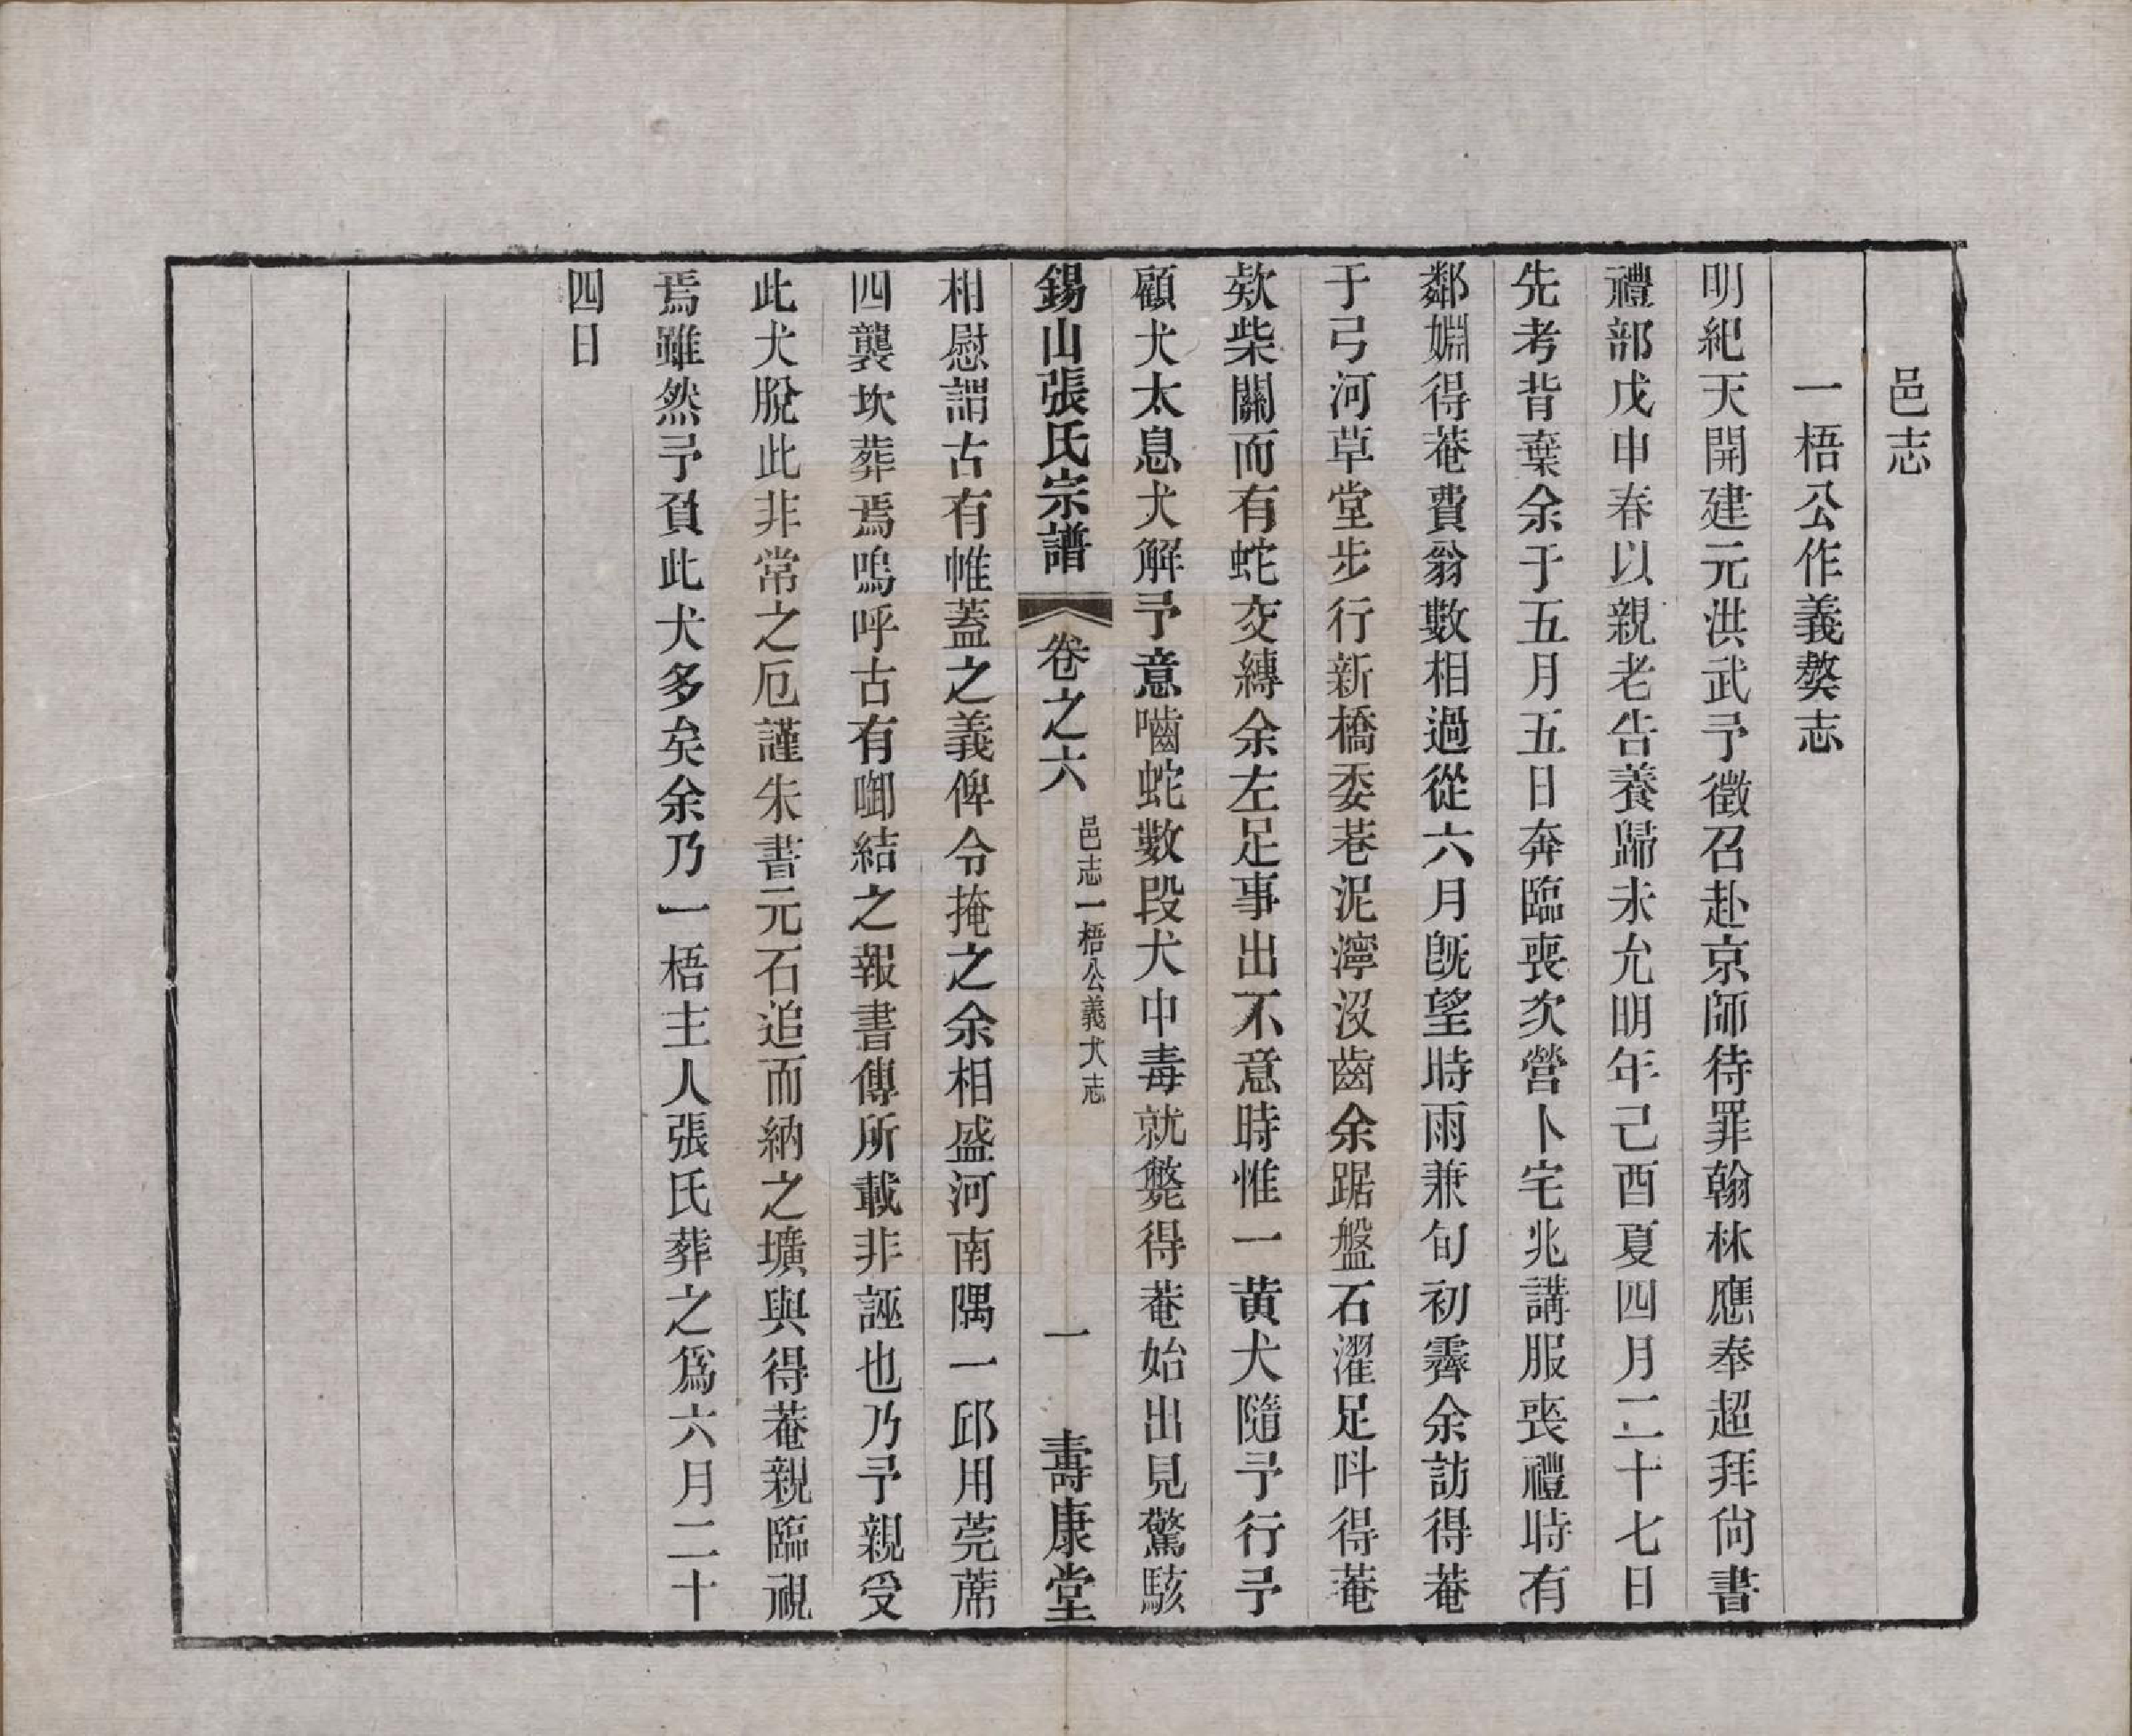 邑志
一梧公作義獒志
明紀天開建元洪武予徵召赴京師待罪翰林應奉超拜尙書
禮部戊申春以親老告養歸未允明年己酉夏四月二十七日
先考背棄余于五月五日奔臨喪次營卜宅兆講服喪禮時有
鄰婣得菴費翁數相過從六月旣望時雨兼旬初霽余訪得菴
于弓河草堂步行新橋委巷泥濘沒齒余踞盤石濯足呌得菴
欵柴關而有蛇交縛余左足事出不意時惟一黄犬隨予行予
顧犬太息犬解予意嚙蛇數段犬中毒就斃得菴始出見驚駭
錫山張氏宗譜 卷之六 邑志一梧公義犬志 一 壽康堂
相慰謂古有帷蓋之義俾令掩之余相盛河南隅一邱用莞蓆
四襲坎葬焉嗚呼古有啣結之報書傳所載非誣也乃予親受
此犬脫此非常之厄謹朱書元石追而納之壙與得菴親臨視
焉雖然予負此犬多矣余乃一梧主人張氏葬之爲六月二十
四日